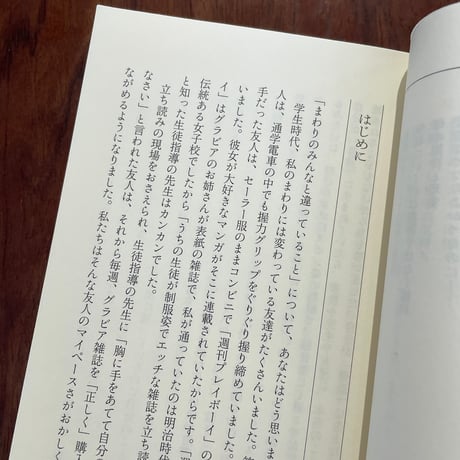 はじめに
「まわりのみんなと違っていること」について、あなたはどう思いま
学生時代、私のまわりには変わっている友達がたくさんいました。
人は、通学電車の中でも握力グリップをぐりぐり握り締めていました。
手だった友人は、セーラー服のままコンビニで「週刊プレイボーイ」の
いました。彼女が大好きなマンガがそこに連載されていたからです。
イ」はグラビアのお姉さんが表紙の雑誌で、私が通っていたのは明治時代
伝統ある女子校でしたから「うちの生徒が制服姿でエッチな雑誌を立ち読
と知った生徒指導の先生はカンカンでした。
立ち読みの現場をおさえられ、生徒指導の先生に「胸に手をあてて自分の
なさい」と言われた友人は、それから毎週、グラビア雑誌を「正しく」購入
ながめるようになりました。私たちはそんな友人のマイペースさがおかしく